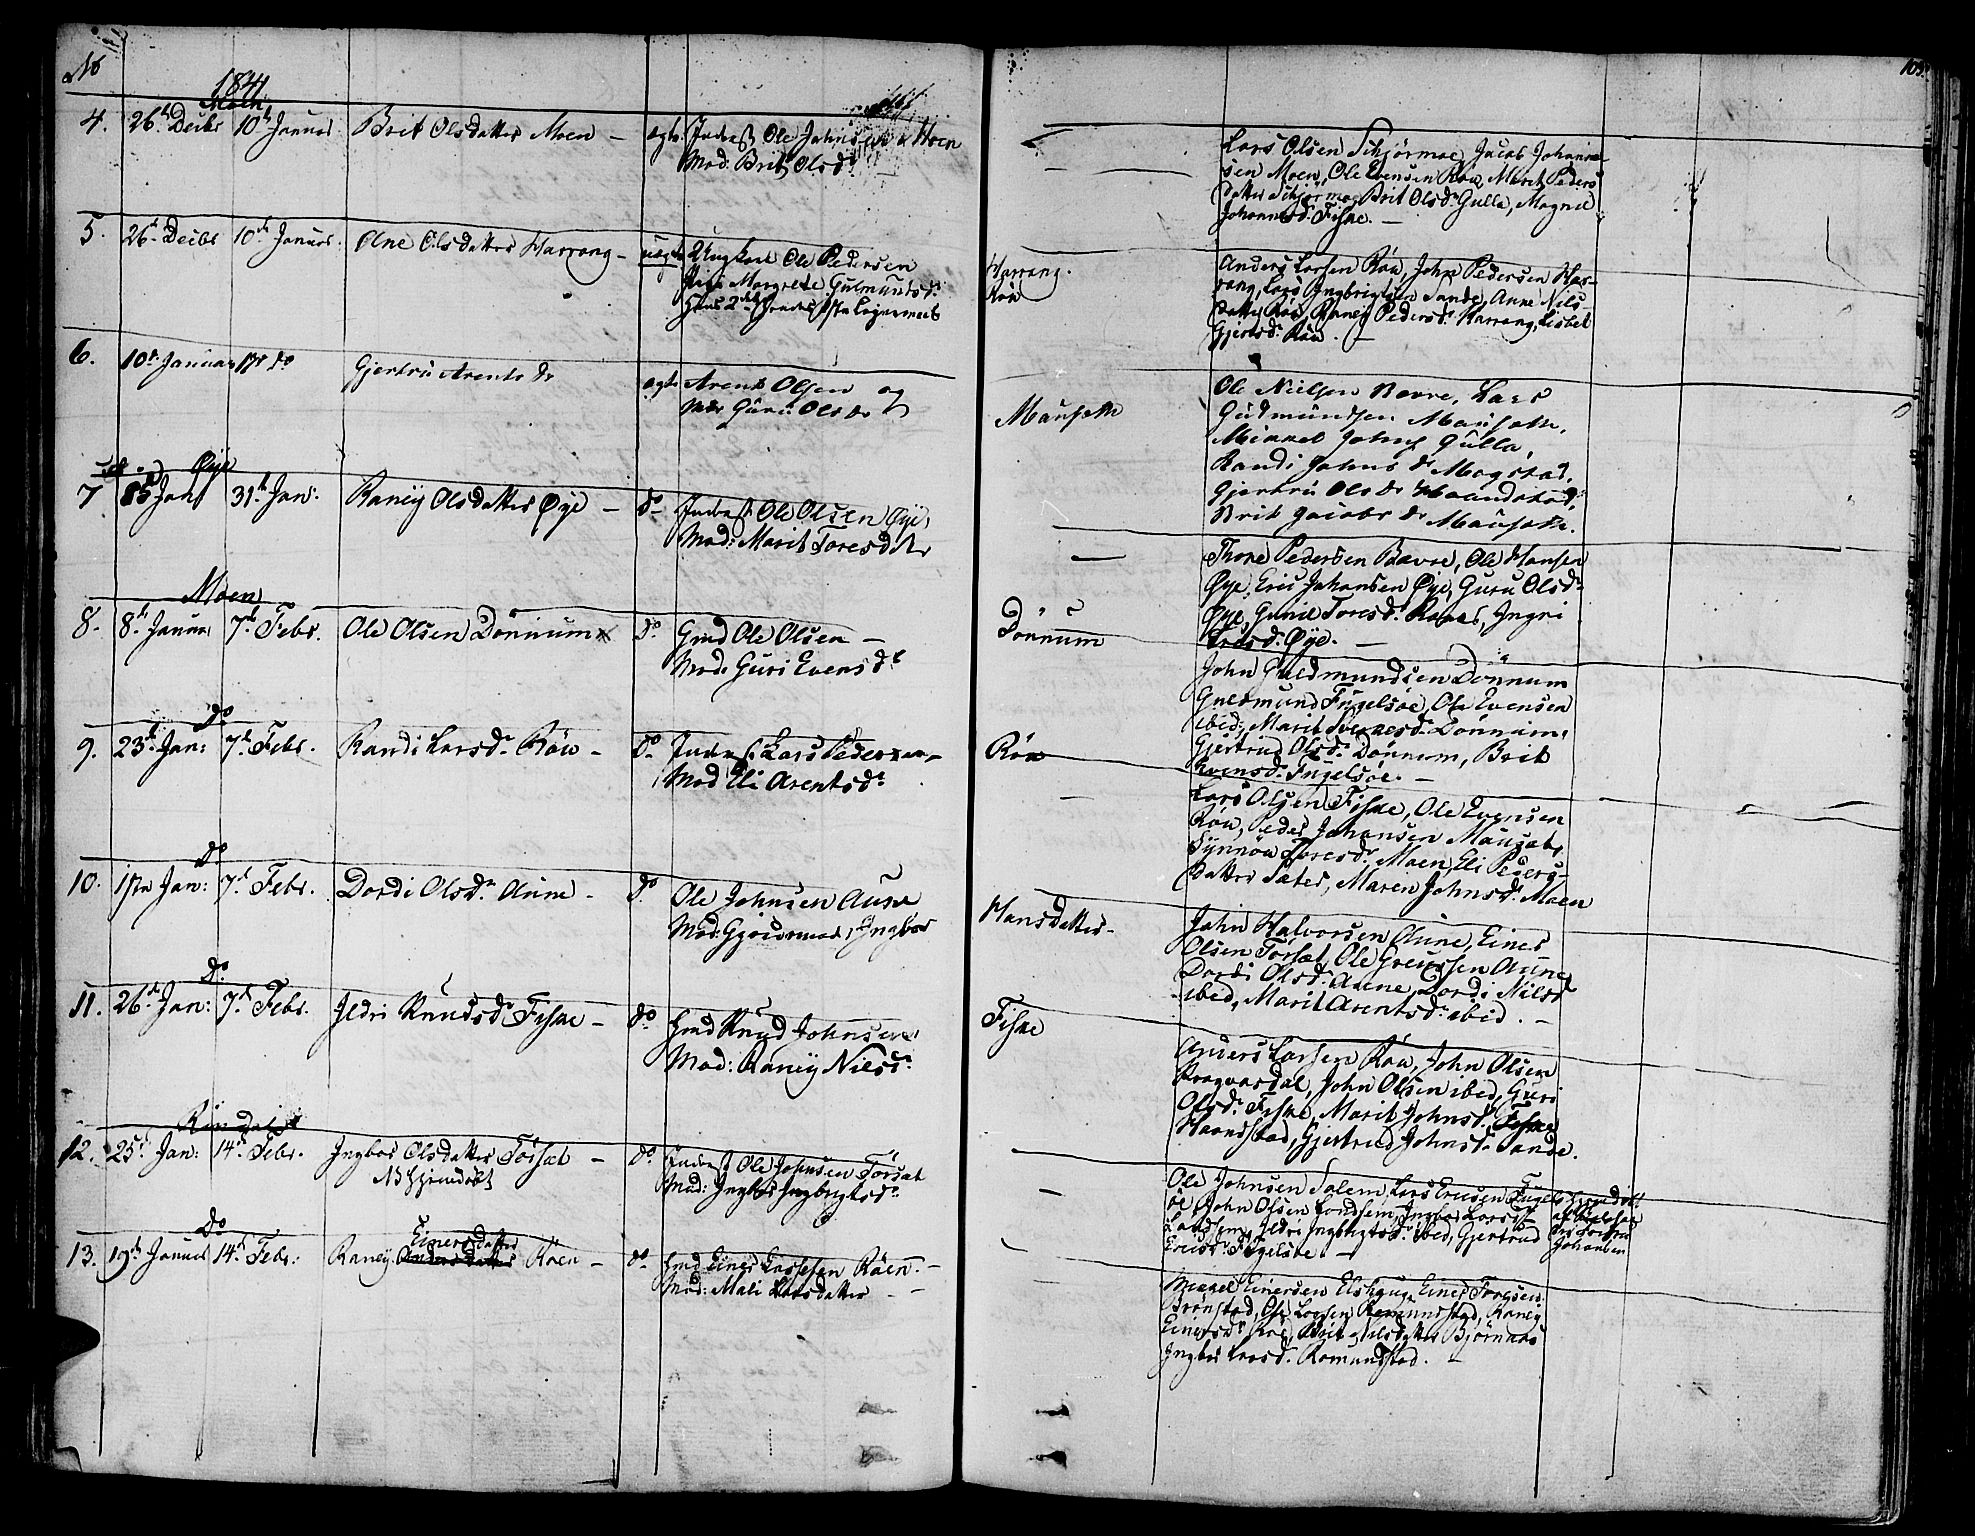 No
1841
4. 26de Decbr 10de Januar Brit Olsdatter Moen – ægte Inderst Ole Johnsen Moen
Mod: Brit Olsdr
5. 26de Decbr 10de Januar. Ane Olsdatter Harrang – uægte Ungkarl Ole Pedersen
Pige Margrete Gulmundsdr
Hans 2det, hendes 1ste Leiermaal
6. 10de Januar 17de do Gjertru Arents dr ægte Arent Olsen og
Mdr Guru Ols dr
Øye
7 Jan 31te Jan: Raney Olsdatter Øye – do Inderst Ole Olsen Øye,
Mod: Marit Toresdatter
Moen
8. 8de Januar 7de Febr. Ole Olsen Dønnum do Gmd Ole Olsen –
Mod. Guri Evensdr
do
9. 23de Jan: 7de Febr. Randi Larsdr Røv – do Inderst Lars Pedersen –
Mod Eli Arentsdr
do
10. 17de Jan: 7de Febr. Dordi Olsdr Aune – do Ole Johnsen Aune
Mod: Ingbor
do
11. 26de Jan: 7de Febr. Jldri Knudsdr Fiske – do Gmd Knud Johnsen
Mod: Raney Nilsdr
Rindal
12. 25de Jan: 14de Febr. Ingbor Olsdatter Torset – do Inderst Ole Johnsen Torset
NB Hjemdøbt Mod: Ingbor Ingbrigtsdr
do
Einersdatter
13. 19de Januar 14de Febr: Raney Andersdatter Røen – do Gmd Einer Larssen Røen. –
Mod: Mali Larsdatter –
105.
Lars Olsen Skjørmoe, Jacob Johanne-
sen Moen, Ole Evensen Røv, Marit Peders
datter Skjørmoe, Brit Olsdr Gulla, Magnil
Johannesdr Fiske. –
Harrang.
Røv
Anders Larsen Røv, John Pedersen Har-
rang, Lars Ingbrigtsen Sande, Anne Nils-
datter Røv, Raney Pedersdr Harrang, Lisbet
Gjertsdr Røv. –
Mauseth
Ole Nielsen Bævre, Lars
Gudmundsen Mauseth,
Mikkel Johns Gulla,
Randi Johns dr Mogstad,
Gjertru Ols dr Haandstad,
Brit Jacobs dr Mauseth.
Thore Pedersen Bævre, Ole Hansen
Øye, Eric Johansen Øye, Guru Olsdr
Øye, Gunil Toresdr Ranes, Ingri
Larsdr Øye. –
Dønnum
John Guldmundsen Dønnum
Guldmund Fugelsøe, Ole Evensen
ibid; Marit Sveinesdr Dønnum,
Gjertrud Olsdr Dønnum, Brit
Evensdr Fugelsøe. –
Røv
Lars Olsen Fiske, Ole Evensen
Røv, Peder Johansen Mauset,
Synnøv Toresdr Moen, Eli Peders-
datter Sæter, Maren Johnsdr Moen
Hansdatter –
John Halvorsen Aune, Einer
Olsen Torset, Ole Greussen Aune
Dordi Olsdr Aune, Dordi Nilsdr
ibid, Marit Arentsdr ibid. –
Fiske
Anders Larsen Røv, John Olsen
Rognvasdal, John Olsen ibid, Guri
Olsdr Fiske, Marit Johnsdr Fiske
Haandstad, Gjertrud Johnsdr Sande.
Ole Johnsen Solem, Lars Ericsen Fugels-
øe, John Olsen Landsem, Ingbor Larsdr
Landsem, Jldri Ingbrigtsdr ibid, Gjertrud
Ericsdr Fugelsøe. –
Hjemdøbt
af
Johansen
Mikkel Einersen Elshaug, Einer Toresen
Brønstad, Ole Larsen Romundstad, Raney
Einersdr Røe, Brit Nilsdatter Bjørnaas
Ingbor Larsdr Romundstad. –